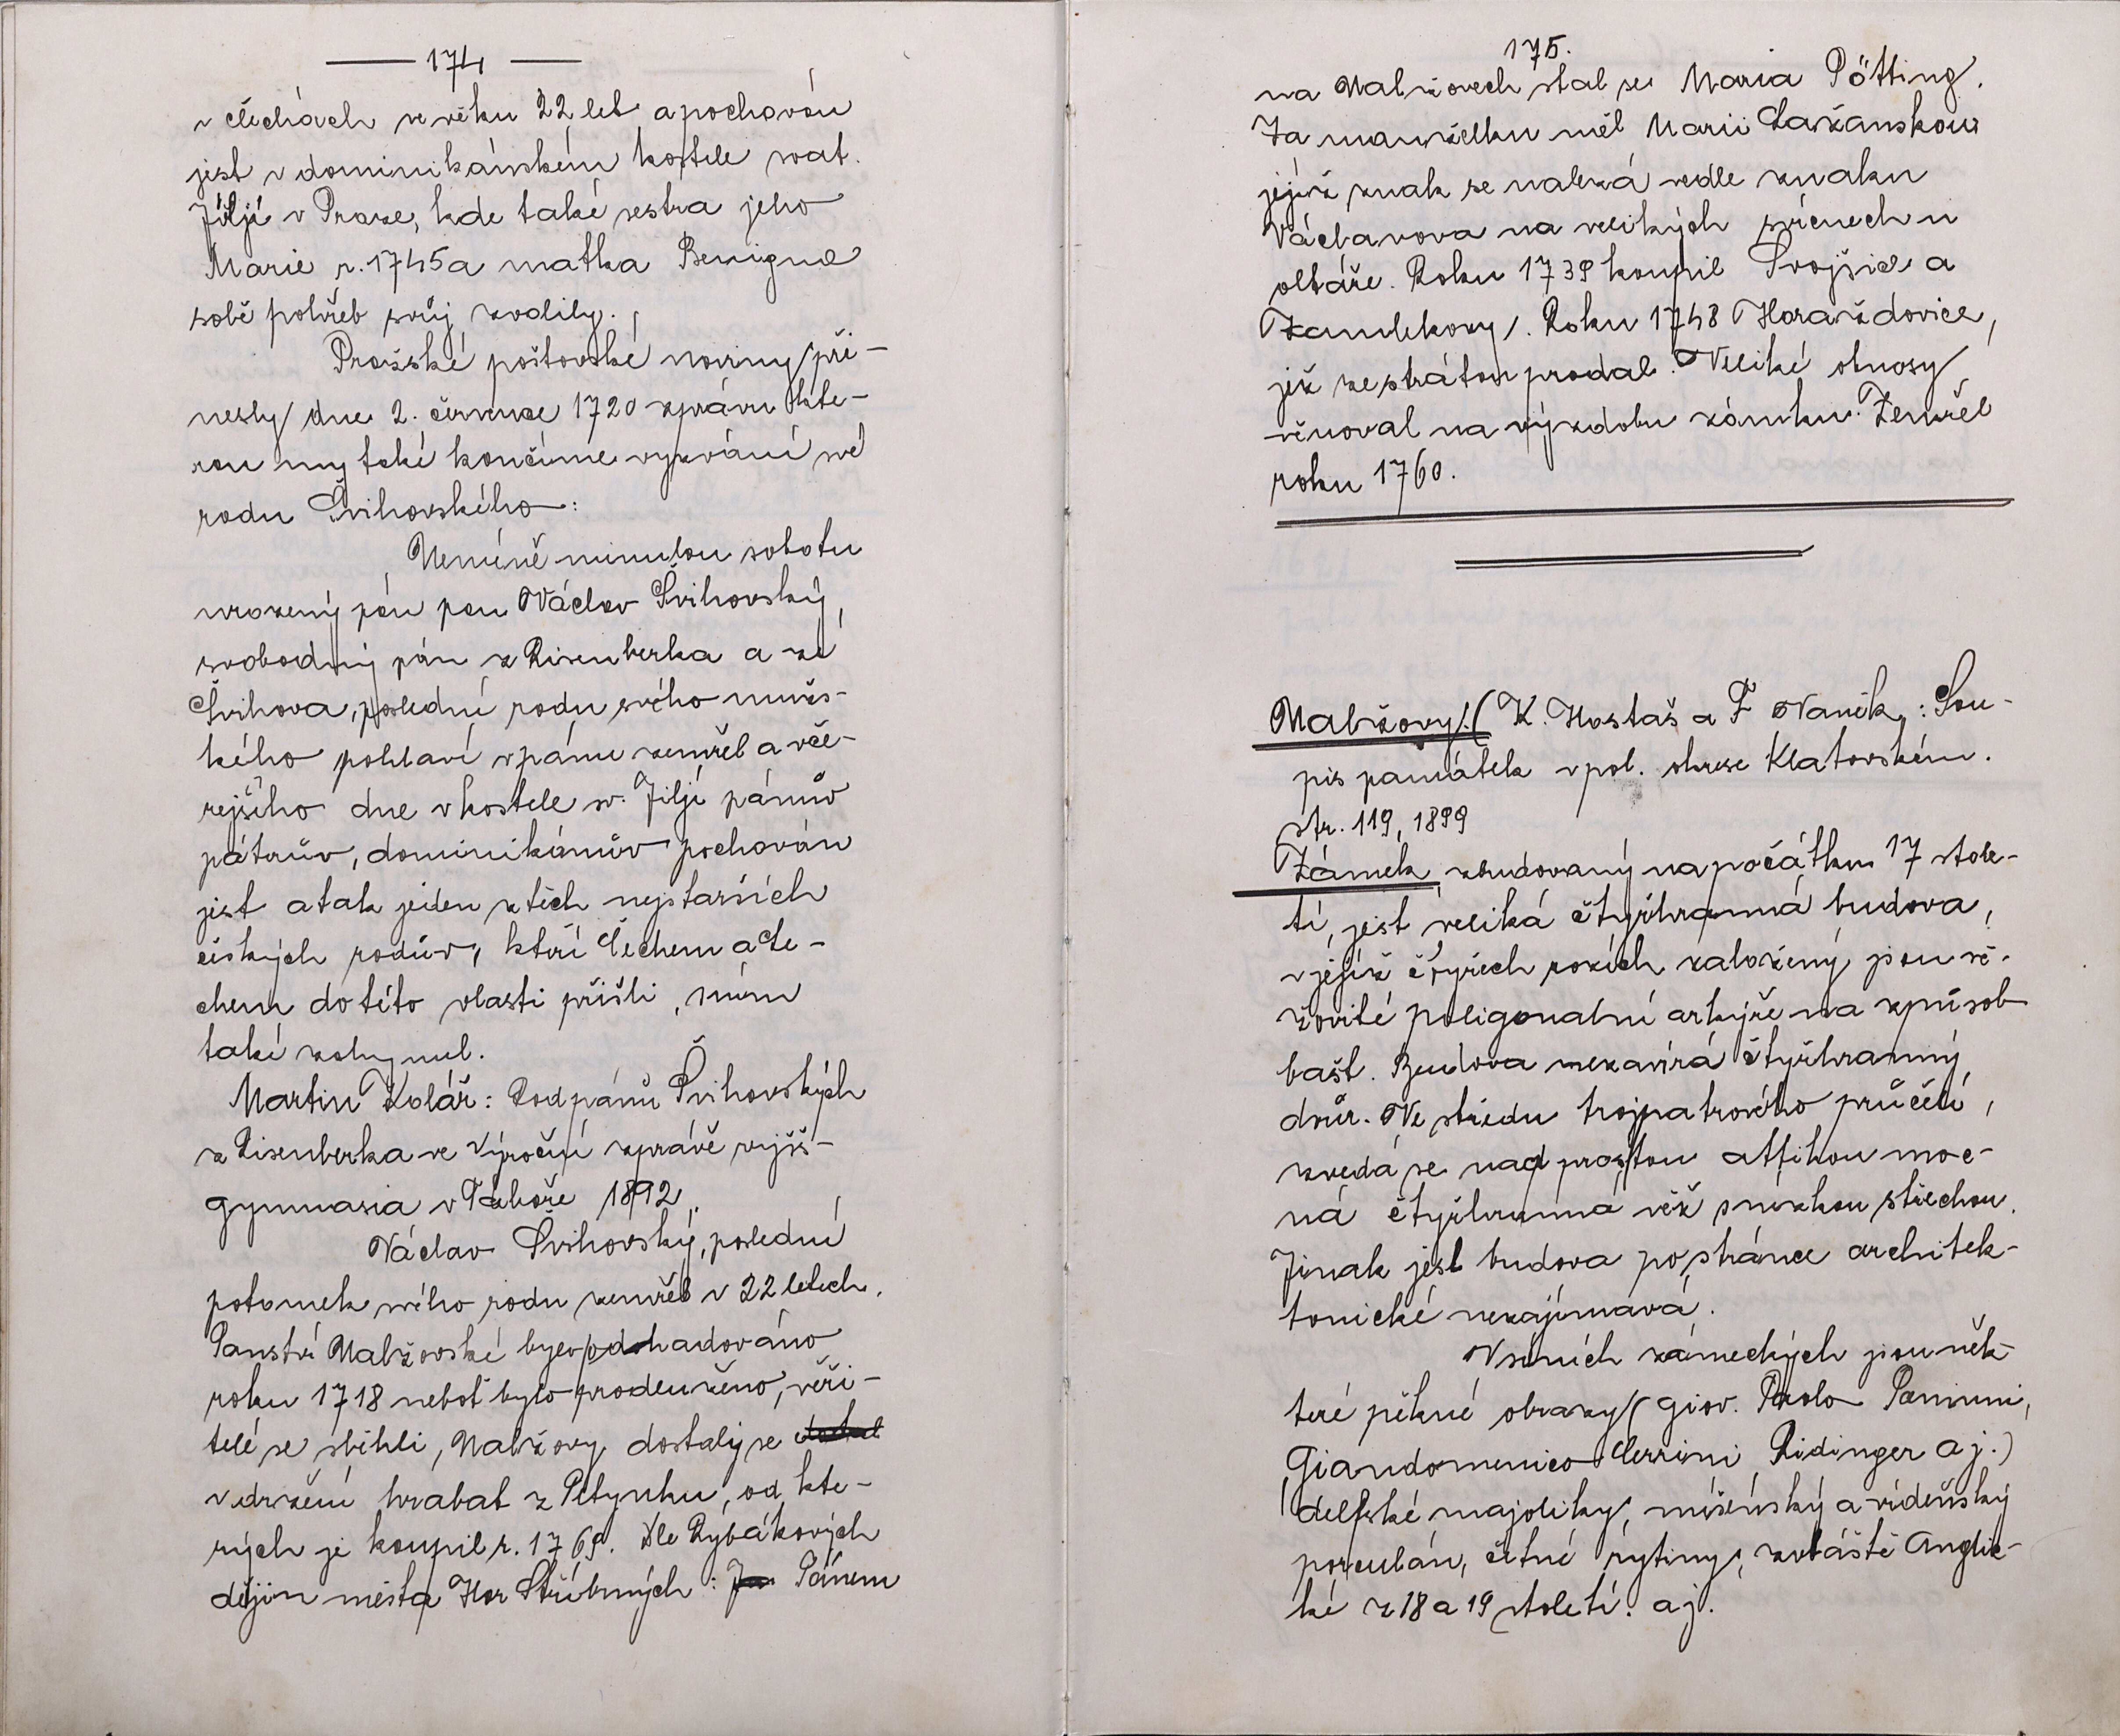 174
v Čechách ve věku 22 let a pochován
jest v dominikánském kostele svat.
Jiljí v Praze, kde také sestra jeho
Marie r. 1745 a matka Benigna
sobě pohřeb svůj zvolily.
Pražské poštovské noviny při-
nesly dne 2. července 1720 zprávu kte-
rou my také končíme vyzvání své
rodu Švihovského:
Neméně minulou sobotu
urozený pán pan Václav Švihovský,
svobodný pán z Risenberka a ze
Švihova, poslední rodu svého mužs-
kého pohlaví v pánu zemřel a vče-
rejšího dne v kostele sv. Jiljí pánův
pátrův, dominikánův pochován
jest a tak jeden z těch nejstarších
českých rodův, kteří Čechem a Le-
chem do této vlasti přišli, s ním
také zahynul.
Martin Kolář: Rod pánů Švihovských
z Risenberka ve Výroční zprávě vyšš-
gymnasia v Táboře 1892.
Václav Švihovský, poslední
potomek svého rodu zemřel v 22 letech.
Panství Nalžovské bylo odhadováno
roku 1718 neboť bylo prodluženo, věři-
telé se sběhli, Nalžovy dostaly se
v držení hrabat z Pětynku, od kte-
rých je koupil r. 1769. Dle Rybákových
dějin města Hor Stříbrných: Pánem
175.
na Nalžovech stal se Maria Pötting.
Za manželku měl Marii Lažanskou
jejíž znak se nalezá vedle znaku
Václavova na velikých svícnech u
oltáře. Roku 1739 koupil Svojšice a
Žamlekovy. Roku 1748 Horažďovice,
jež ze ztrátou prodal. Veliké obnosy
věnoval na výzdobu zámku. Zemřel
roku 1760.
Nalžovy. (K. Hostaš a F Vaněk: Sou-
pis památek v pol. okrese Klatovském.
str. 119, 1899
Zámek, zbudovaný na počátku 17 stole-
tí, jest veliká čtyřhranná budova,
v jejíž čtyřech rozích založeny jsou vě-
žovité poligonalní arkýře na způsob
bašt. Budova uzavírá čtyřhranný
dvůr. Ve středu trojpatrového průčelí,
zvedá se nad prostou attikou moc-
ná čtyřhranná věž s nízkou střechou.
Jinak jest budova po stránce architek-
tonické nezajímavá.
V síních zámeckých jsou něk-
teré pěkné obrazy (Giov. Paolo Pannini,
Giandomenico Cerrini Ridinger a j.)
delfské majoliky, míšeňský a vídeňský
porculán, četné rytiny, zvláště Anglic-
ké z 18 a 19 století. a j.